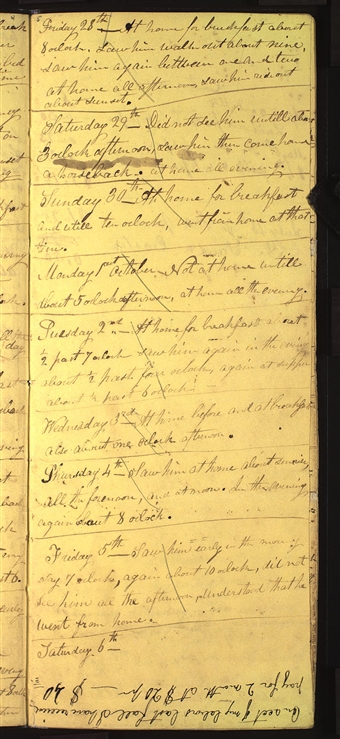 Friday 28th — At home for breakfast about
8 oclock. Saw him walk out about nine,
saw him again between one and two
at home all afternoon, saw him ride out
about sunset.
Saturday 29th — Did not see him untill about
3 oclock afternoon, saw him then come home
a horseback. at home all evening.
Sunday 30th At home for breakfast
and untill ten oclock, went from home at that
time.
Monday 1st October — Not at home untill
about 5 oclock afternoon, at home all the evening.
Tuesday 2nd — At home for breakfast about
½ past 7 oclock saw him again in the evening
about ½ past four oclock, again at supper
about ½ past 6 oclock.
Wednesday 3rd — At home before and at breakfast
also about one oclock afternoon.
Thursday 4th — Saw him at home about sunrise,
all the forenoon, and at noon. In the evening
again about 8 oclock.
Friday 5th — Saw him early in the morn-
ing 7 oclock, again about 10 oclock, did not
see him in the afternoon, understand that he
went from home.
Saturday 6th —
On acct of my labors last fall I have receiv
pay for 2 months at $20 pr $40